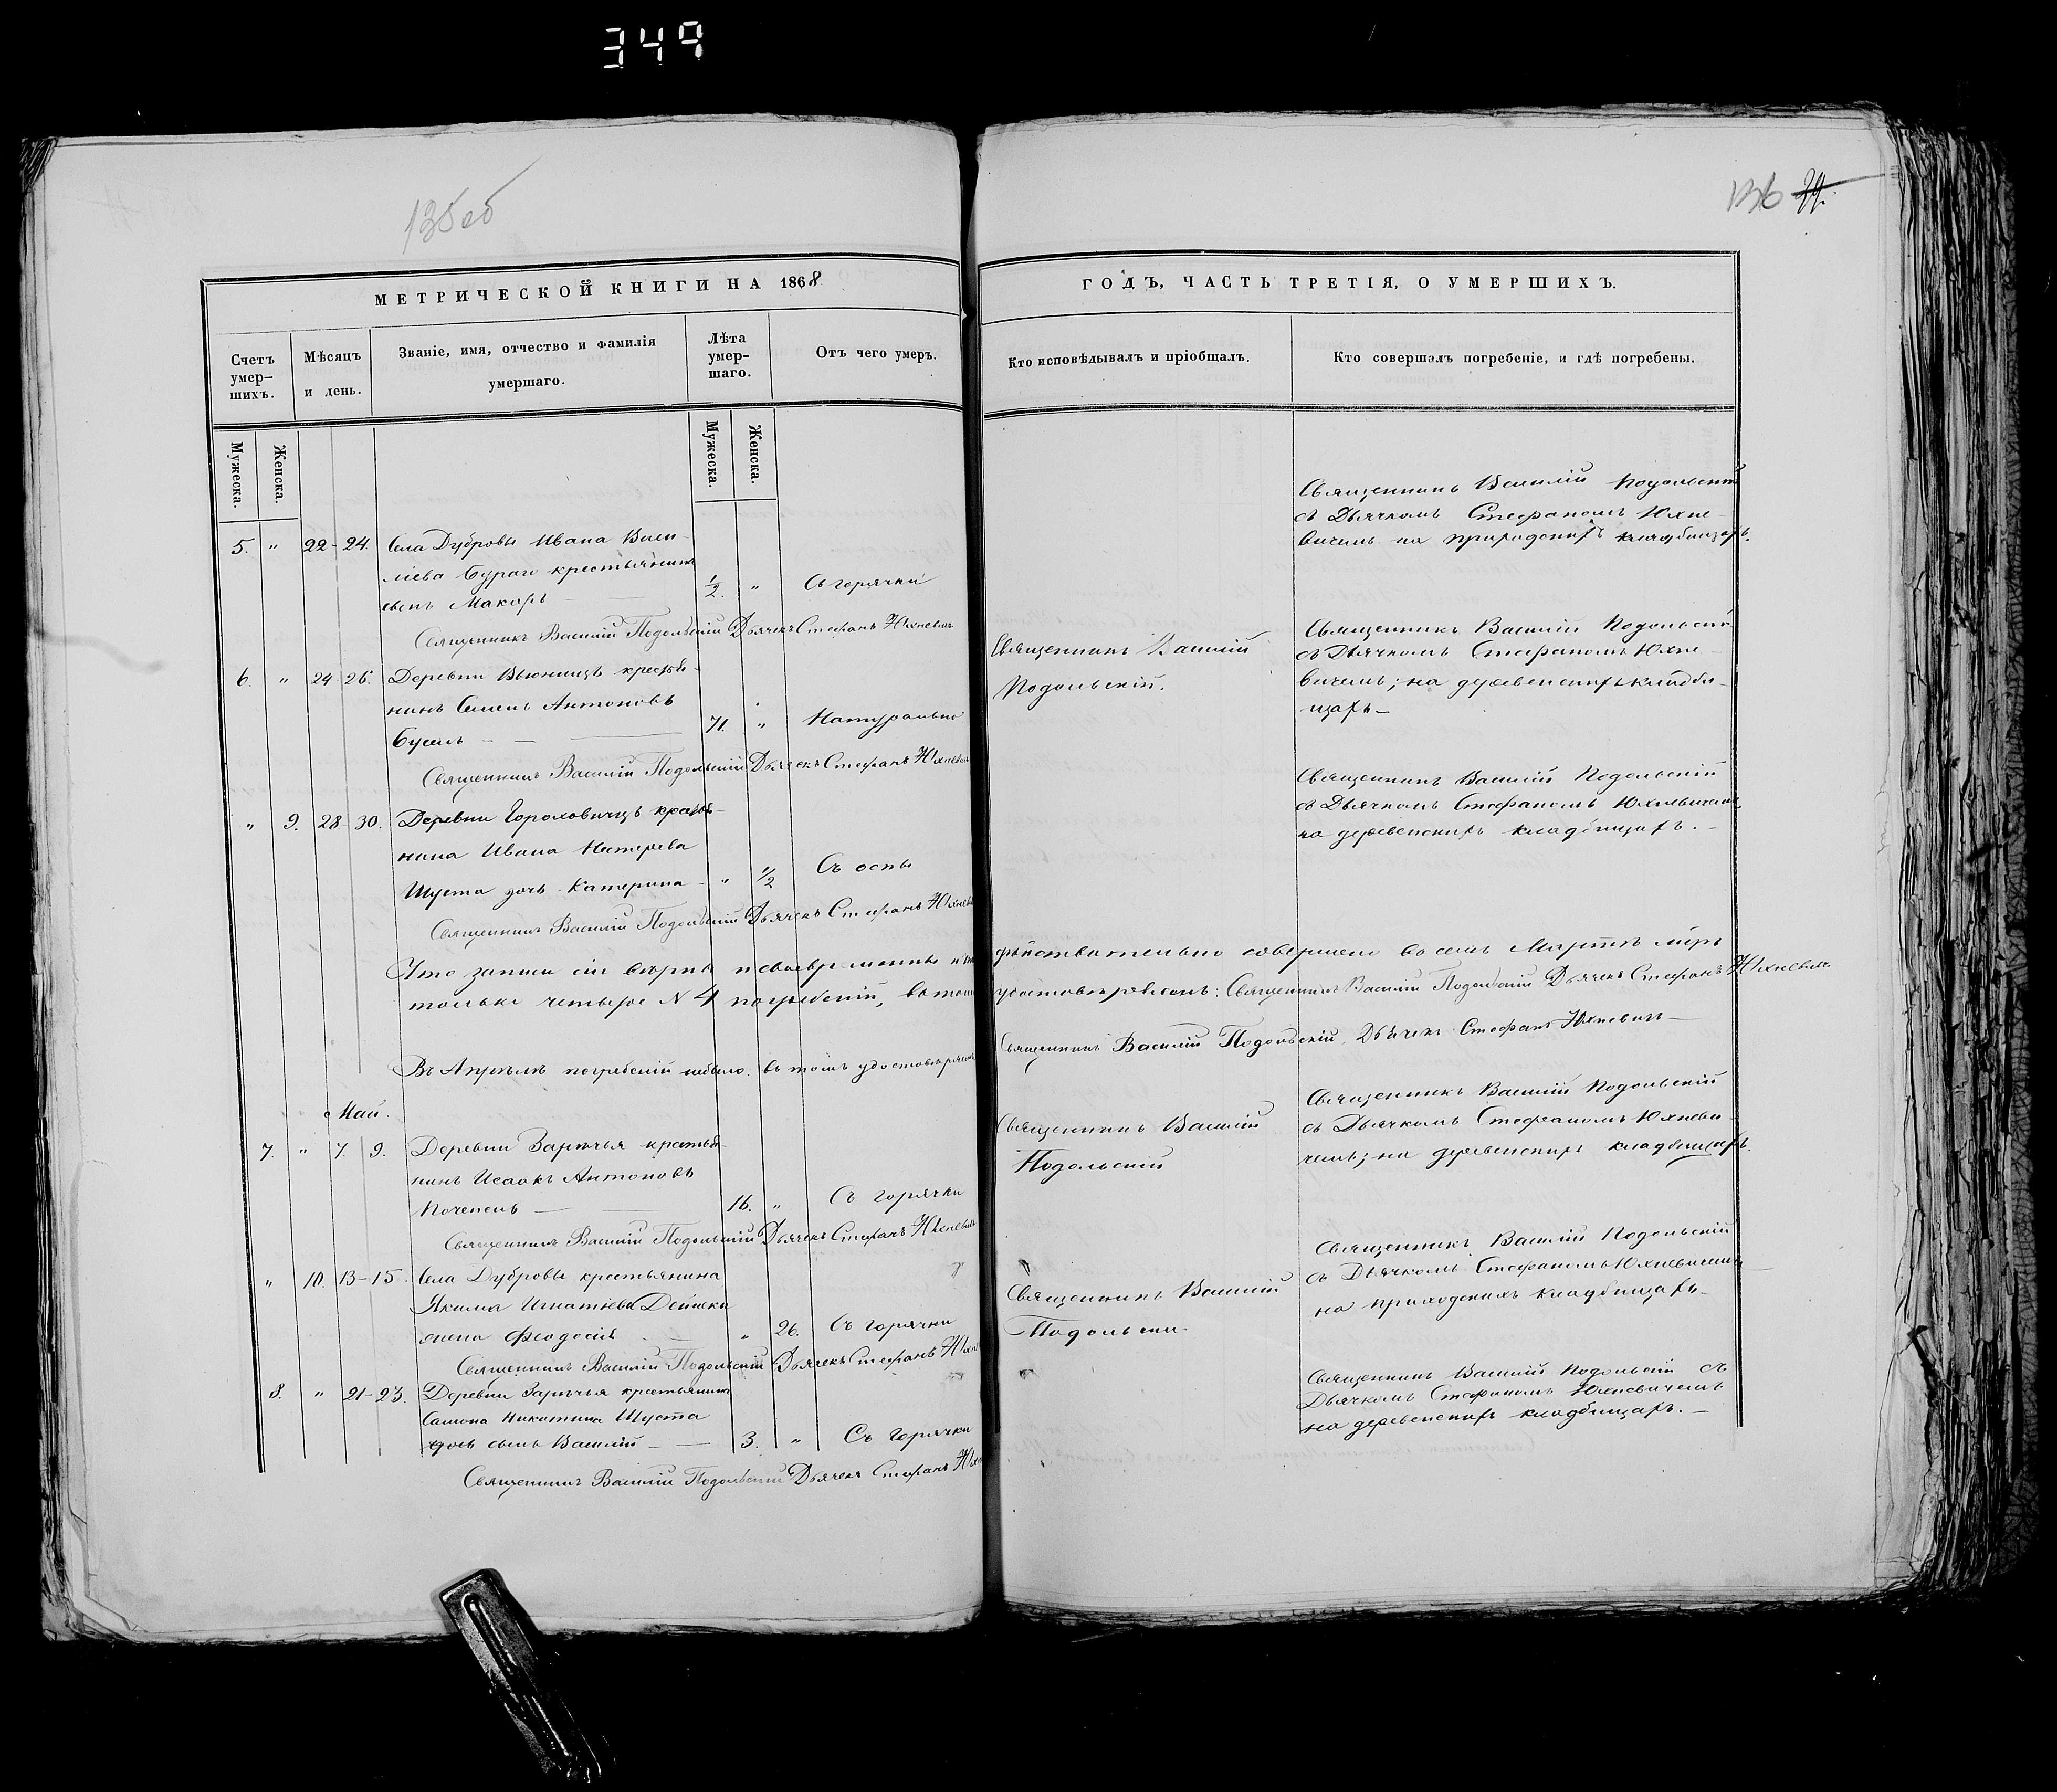 349
135об
136 39.
МЕТРИЧЕСКОЙ КНИГИ НА 1868
ГОДЪ, ЧАСТЬ ТРЕТІЯ, О УМЕРШИХЪ.
Счетъ умер-шихъ.
Мѣсяцъ и день.
Званіе, имя, отчество и фамилія умершаго.
Лѣта умер-шаго.
Отъ чего умеръ.
Кто исповѣдывалъ и пріобщалъ.
Кто совершалъ погребеніе, и гдѣ погребены.
Мужеска.
Женска.
Мужеска.
Женска.
5. " 22-24. Села Дубровы Ивана Васи-
ліева Бураго крестьянина
сынъ Макаръ — 1/2. " Съ горячки
Священникъ Василій Подольскій
съ Дьячкомъ Стефаномъ Юхне-
вичемъ на приходскихъ кладбищахъ.
Священникъ Василій Подольскій Дьячекъ Стефанъ Юхневичъ
6. " 24 26. Деревни Вьюнищъ крестья-
нинъ Семенъ Антоновъ
Бусель — — 71. " Натурально
Священникъ Василій
Подольскій.
Священникъ Василій Подольскій
съ Дьячкомъ Стефаномъ Юхне-
вичемъ; на деревенскихъ кладби-
щахъ —
Священникъ Василій Подольскій Дьячекъ Стефанъ Юхневичъ
" 9. 28 30. Деревни Гороховичъ крестья-
нина Ивана Нестерева
Шуста дочь Катерина — " 1/2 Съ оспы
Священникъ Василій Подольскій
съ Дьячкомъ Стефаномъ Юхневичемъ
на деревенскихъ кладбищахъ. —
Священникъ Василій Подольскій Дьячекъ Стефанъ Юхневичъ
Что записи сіи вѣрны и своевременны и дѣйствительно совершено во семъ Мартѣ мѣсяцѣ
только четыре N 4 погребеній, въ томъ удостовѣряемъ: Священникъ Василій Подольскій Дьячекъ Стефанъ Юхневичъ
Въ Апрѣлѣ погребеній небыло. въ томъ удостовѣряемъ Священникъ Василій Подольскій, Дьячекъ Стефанъ Юхневичъ —
Май.
7. " 7. 9. Деревни Зарѣчья крестья-
нинъ Исаакъ Антоновъ
Почепень — — 16. " Съ горячки
Священникъ Василій
Подольскій
Священникъ Василій Подольскій
съ Дьячкомъ Стефаномъ Юхневи-
чемъ; на деревенскихъ кладбищахъ
Священникъ Василій Подольскій Дьячекъ Стефанъ Юхневичъ
" 10. 13-15. Села Дубровы крестьянина
Якима Игнатіева Дейнека
жена Феодосія — " 26. Съ горячки
Священникъ Василій
Подольски.
Священникъ Василій Подольскій
съ Дьячкомъ Стефаномъ Юхневичемъ
на приходскихъ кладбищахъ —
Священникъ Василій Подольскій Дьячекъ Стефанъ
8. " 21-23. Деревни Зарѣчья крестьянина
Самона Никитина Шуста
сынъ Василій — — 3. " Съ горячки
Священникъ Василій Подольскій съ
Дьячкомъ Стефаномъ Юхневичемъ
на деревенскихъ кладбищахъ. —
Священникъ Василій Подольскій Дьячекъ Стефанъ